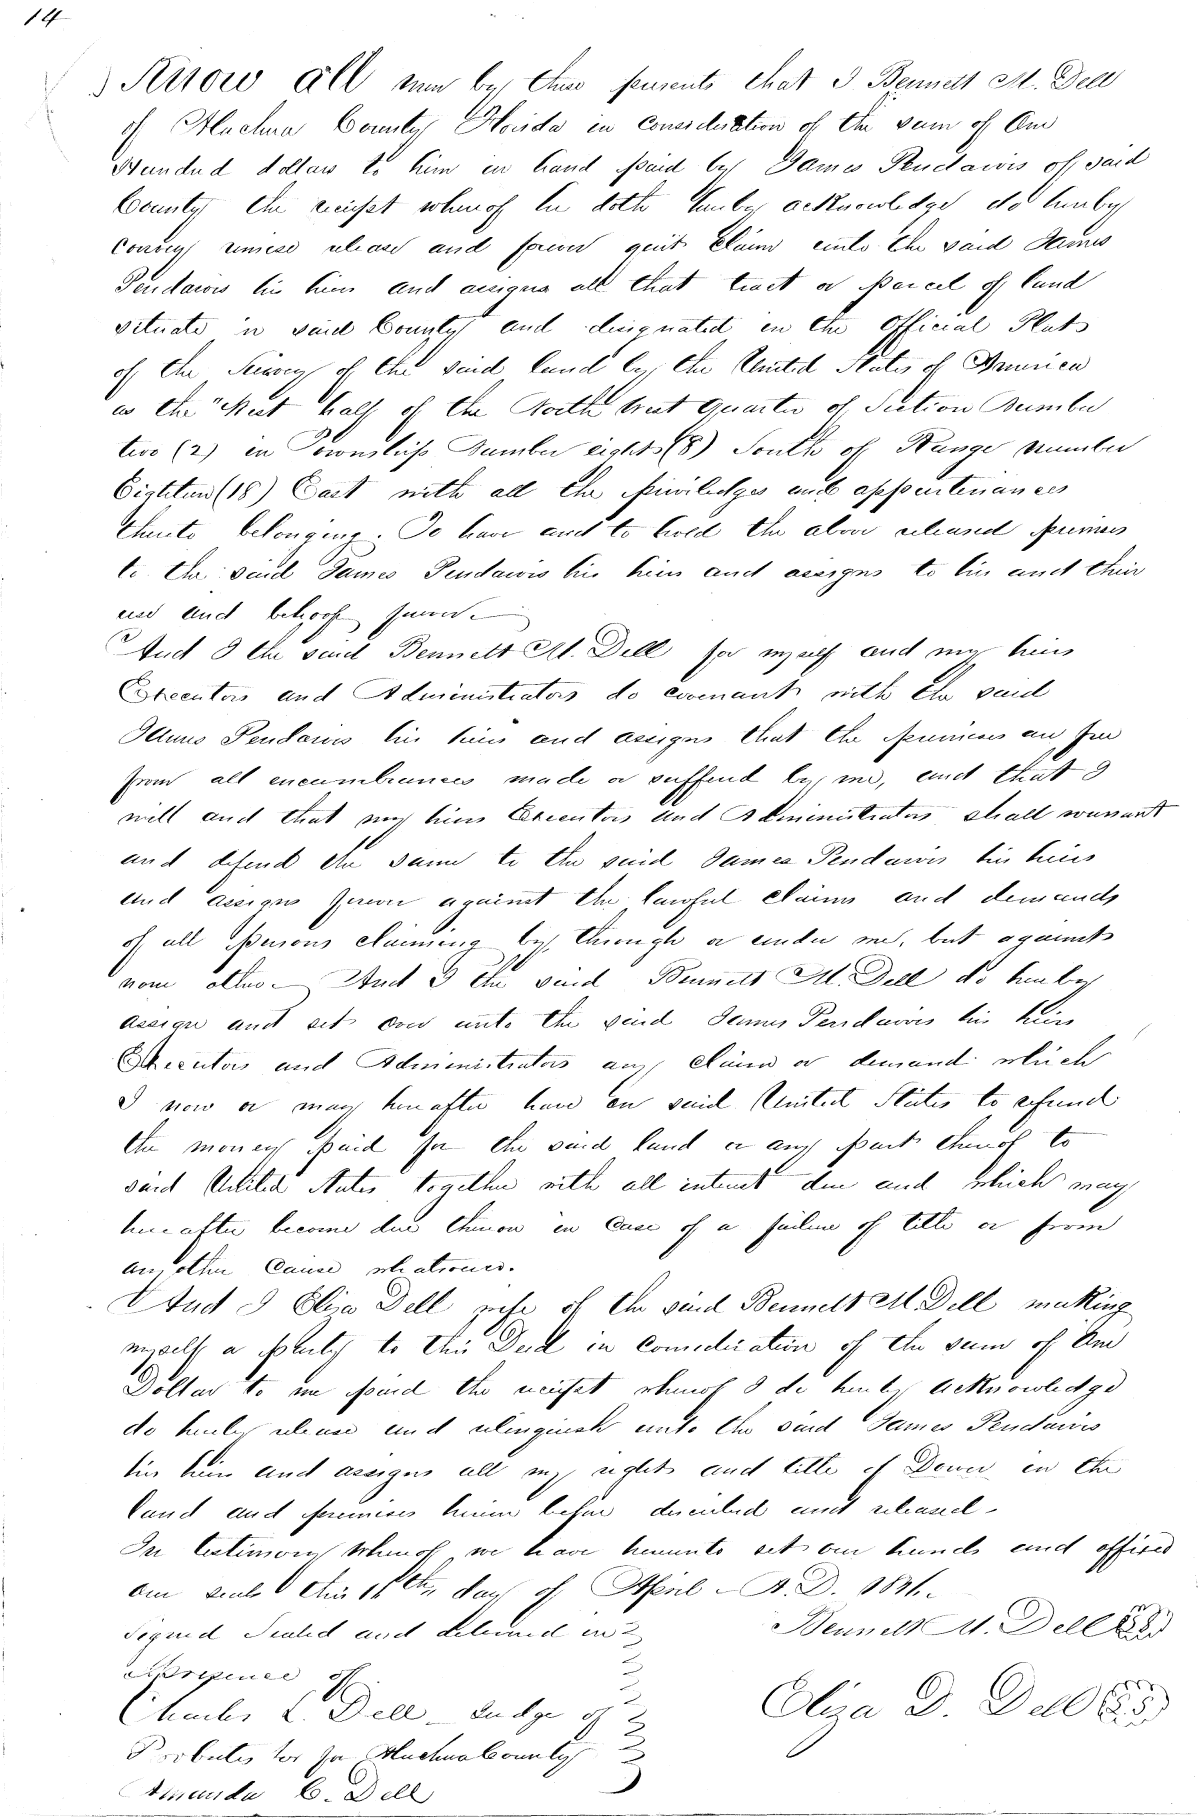 14
Know all men by these presents that I Bennett M. Dell
of Alachua County Florida in consideration of the sum of One
Hundred dollars to him in hand paid by James Pendarvis of said
County the receipt whereof he doth hereby acKnowledge do hereby
convey remise release and forever quit claim unto the said James
Pendarvis his heirs and assigns all that tract or parcel of land
situate in said County and designated in the Official Plats
of the Survey of the said land by the United States of America
as the "West half of the North West Quarter of Section Number
two (2) in Township Number eight (8) South of Range number
Eighteen (18) East with all the priviledges and appurtenances
thereto belonging. To have and to hold the above released premises
to the said James Pendarvis his heirs and assigns to his and their
use and behoof forever.
And I the said Bennett M. Dell for myself and my heirs
Executors and Administrators do covenant with the said
James Pendarvis his heirs and assigns that the premises are free
from all encumbrances made or suffered by me, and that I
will and that my heirs Executors and Administrators shall warrant
and defend the same to the said James Pendarvis his heirs
and assigns forever against the lawful claims and demands
of all persons claiming by, through or under me, but against
none other. And I the said Bennett M. Dell do hereby
assign and set over unto the said James Pendarvis his heirs
Executors and Administrators any claim or demand which
I now or may hereafter have on said United States to refund
the money paid for the said land or any part thereof to
said United States together with all interest due and which may
hereafter become due thereon in case of a failure of title or from
any other cause whatsoever.
And I Eliza Dell wife of the said Bennett M. Dell making
myself a party to this Deed in consideration of the sum of One
Dollar to me paid the receipt whereof I do hereby acKnowledge
do hereby release and relinquish unto the said James Pendarvis
his heirs and assigns all my right and title of Dower in the
land and premises herein before described and released.
In testimony whereof we have hereunto set our hands and affixed
our seals this day of April A.D. 1846.
Signed Sealed and delivered in Bennett M. Dell
presence of
Charles L. Dell Judge of Eliza D. Dell
Probates for Alachua County
Amanda C. Dell